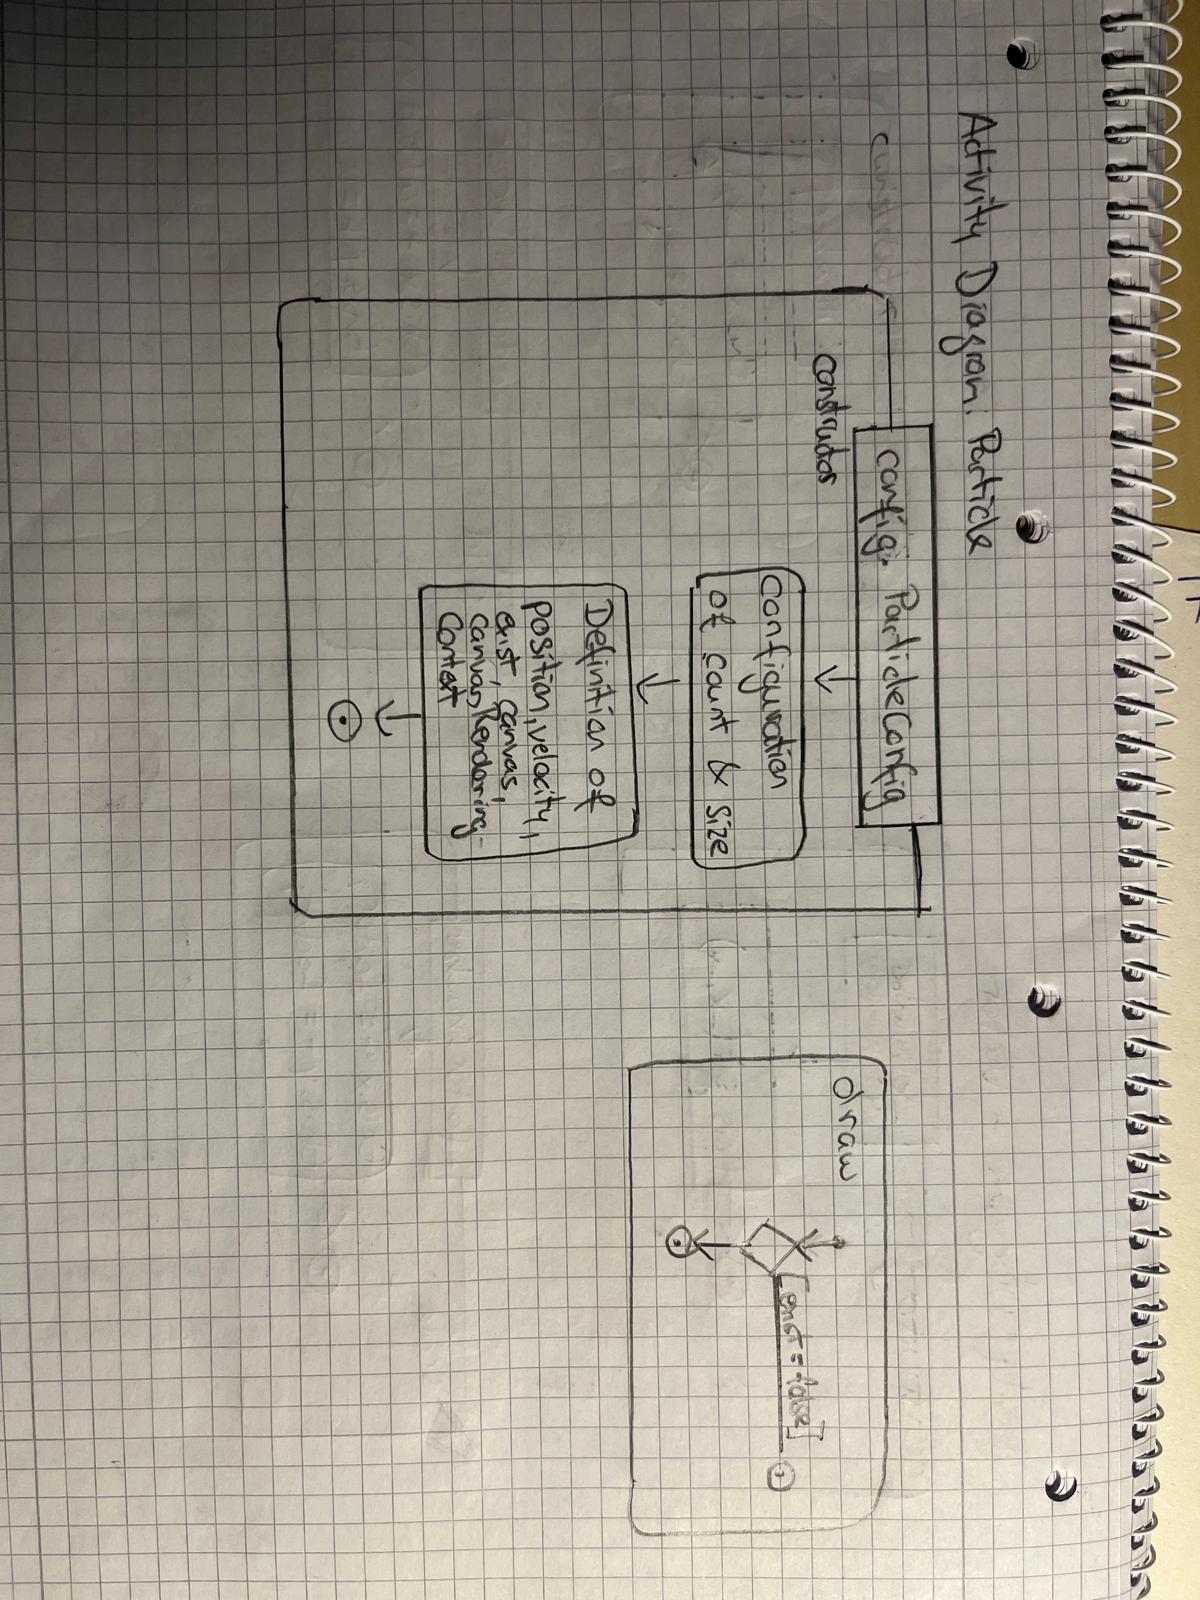 Activity Diagram: Particle
config: ParticleConfig
constructor
Configuration
of count & size
Definition of
position, velocity,
exist, canvas,
canvasRendering-
Context
draw
[exist = false]